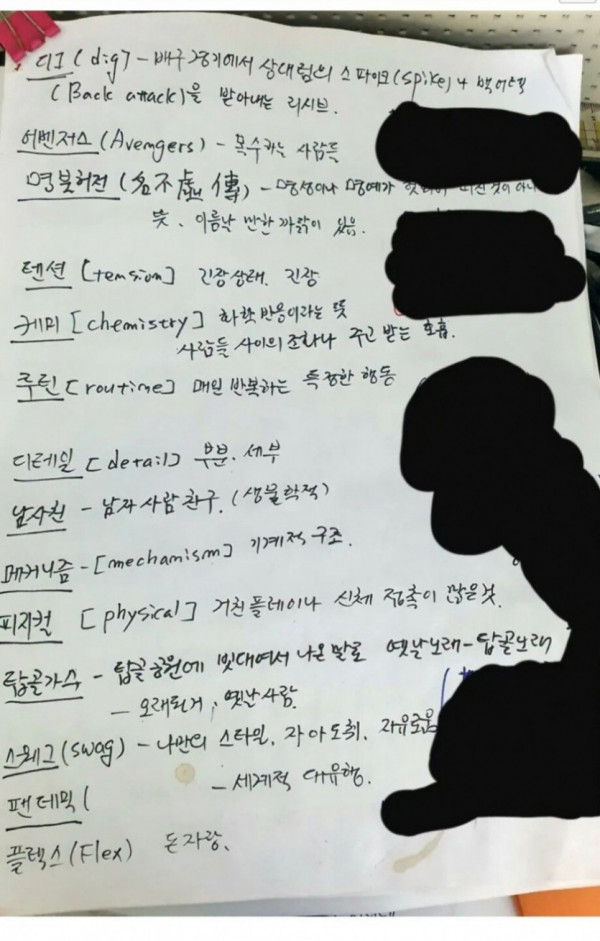 디그(dig) - 배구경기에서 상대팀의 스파이크(spike)나 백어택
(Back attack)을 받아내는 리시브.
어벤저스(Avengers) - 복수하는 사람들
명불허전(名不虛傳) - 명성이나 명예가
뜻. 이름날 만한 까닭이 있음.
텐션 [tension] 긴장상태. 긴장
케미 [chemistry] 화학반응이라는 뜻
사람들 사이의 조화나 주고 받는 호흡.
루틴 [routine] 매일 반복하는 특정한 행동
디테일 [detail] 부분. 세부
남사친 - 남자 사람 친구. (생물학적)
메커니즘 - [mechanism] 기계적 구조.
피지컬 [physical] 거친플레이나 신체 접촉이 많은것.
탑골가수 - 탑골공원에 빗대여서 나온 말로 옛날노래 - 탑골노래
- 오래되거, 옛날사람.
스웨그(swag) - 나만의 스타일, 자아도취, 자유로움
팬데믹( - 세계적 대유행.
플렉스(Flex) 돈자랑.